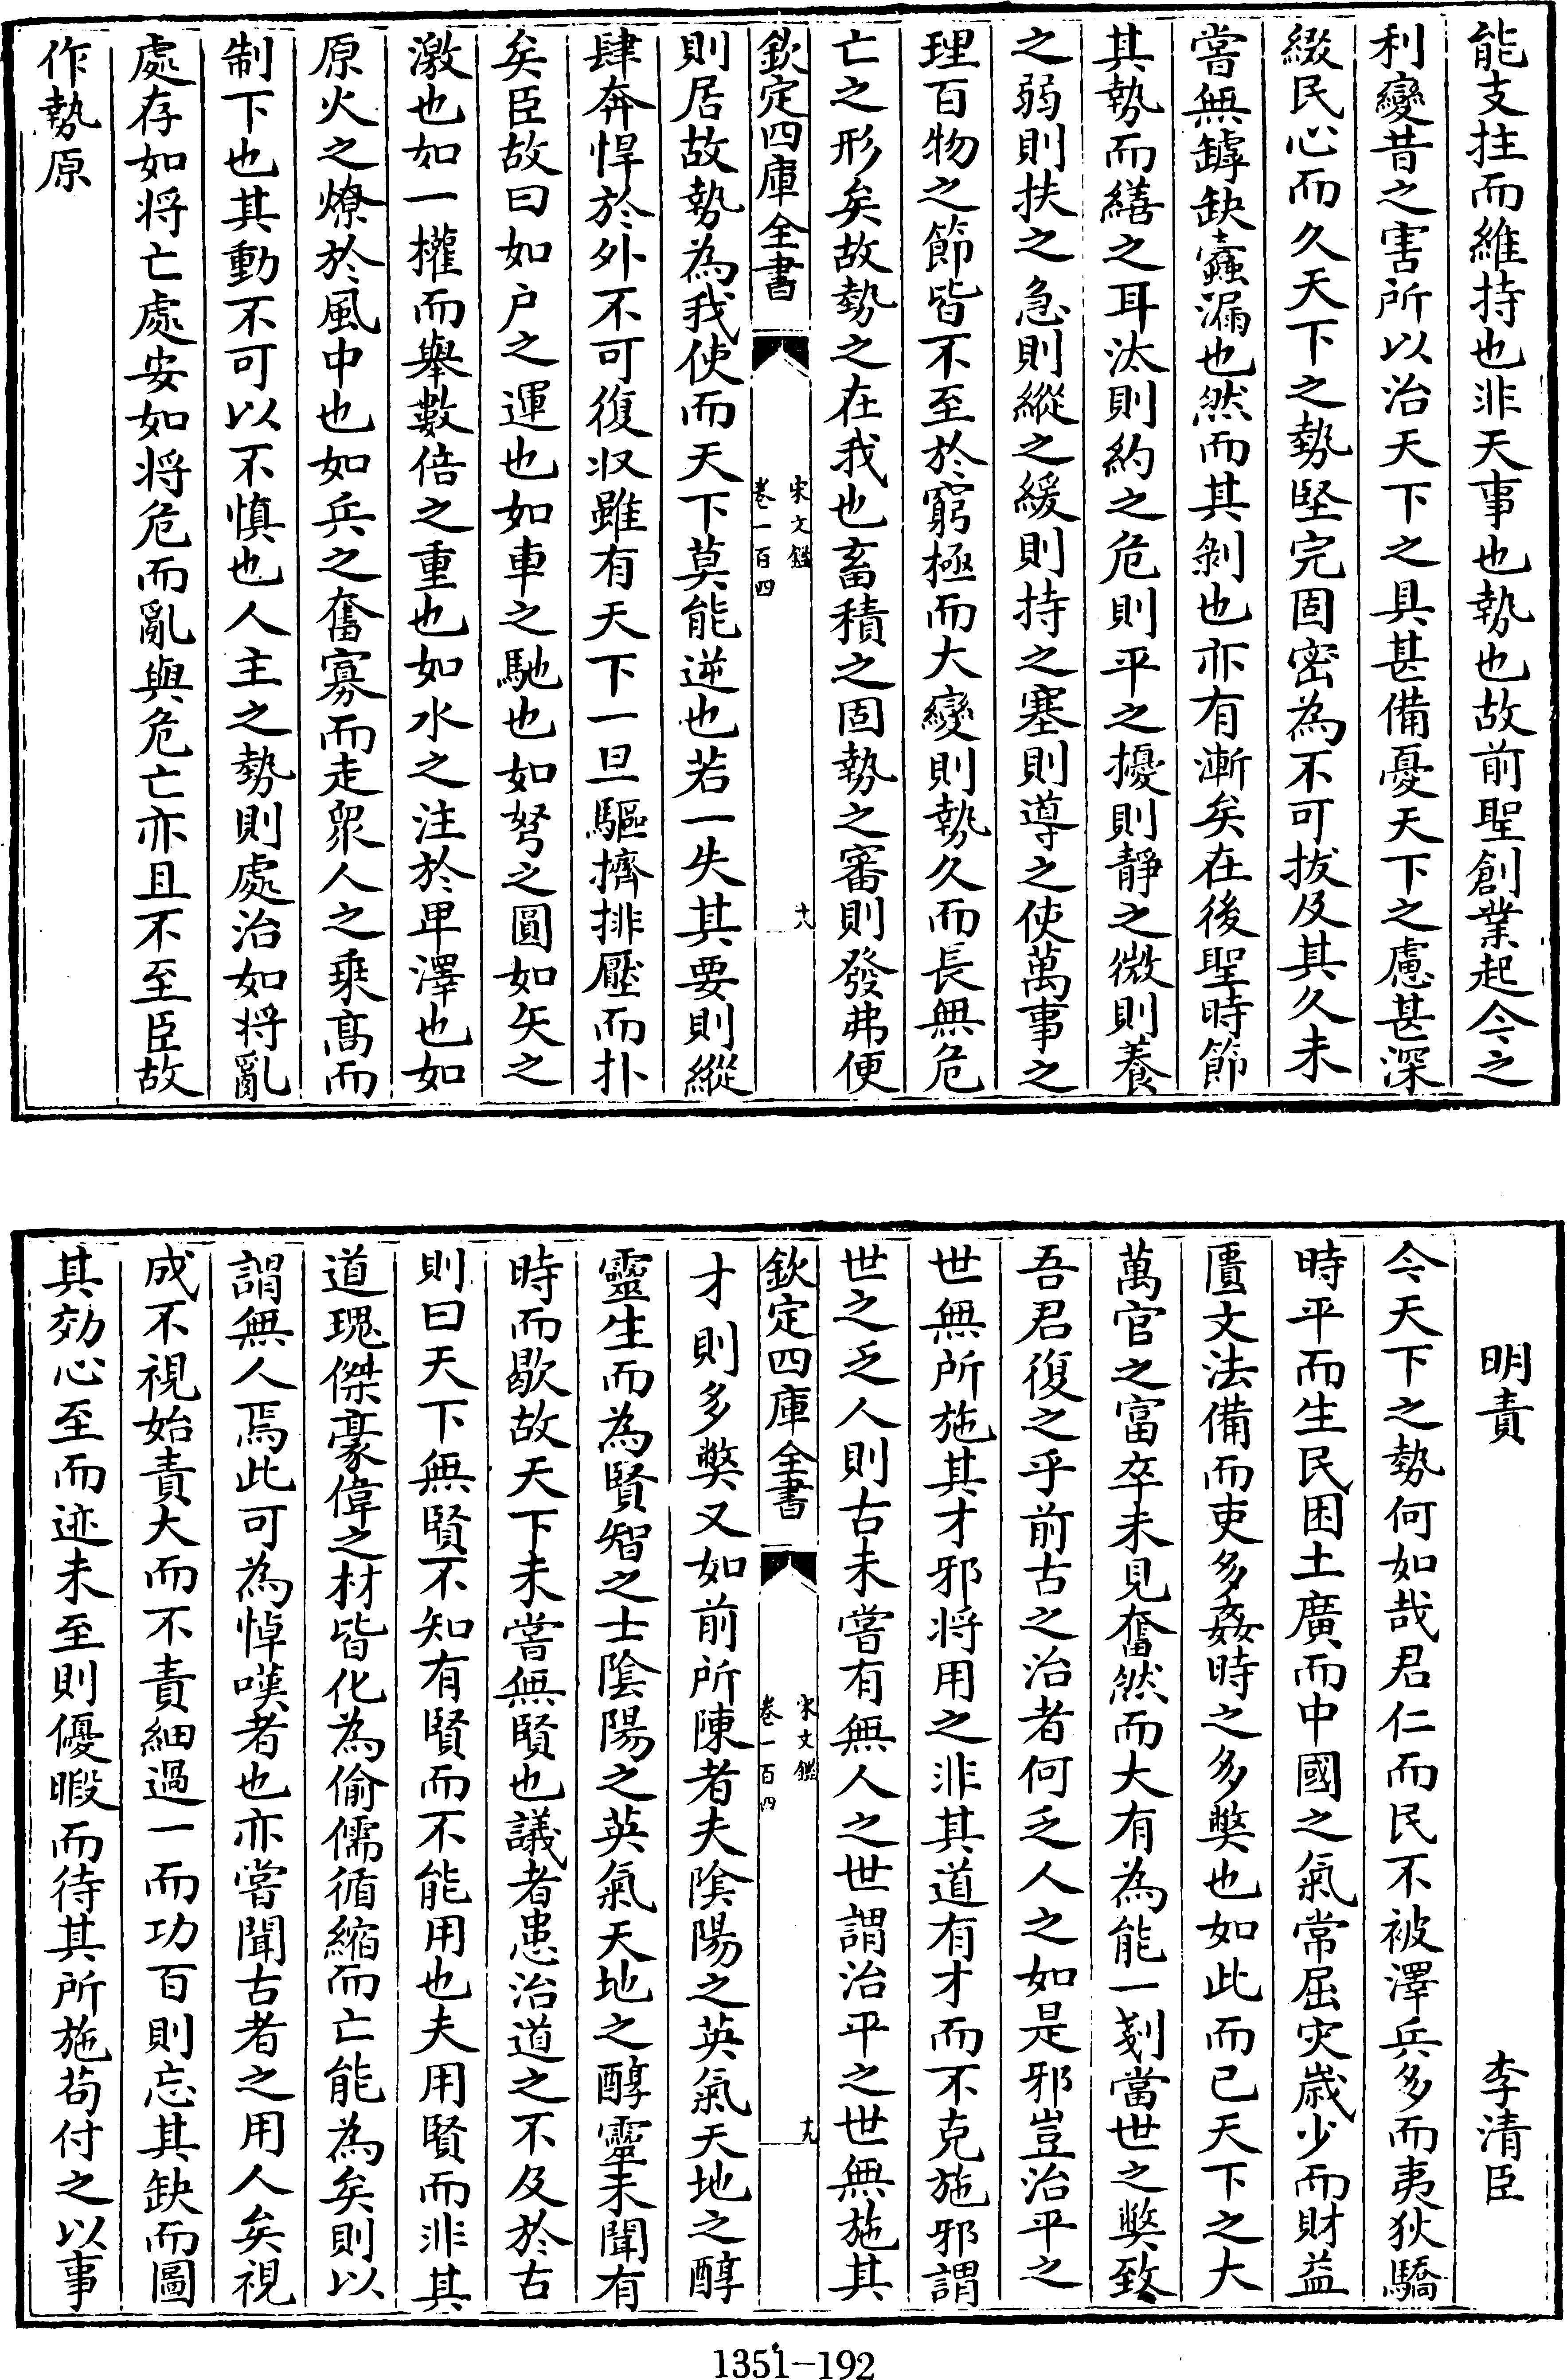 能支拄而維持也非天事也勢也故前聖創業起今之
利變昔之害所以治天下之具甚備憂天下之慮甚深
綴民心而久天下之勢堅完固密為不可拔及其久未
嘗無罅缺蠧漏也然而其剝也亦有漸矣在後聖時節
其勢而繕之耳汰則約之危則平之擾則靜之微則養
之弱則扶之急則縱之緩則持之塞則導之使萬事之
理百物之節皆不至於窮極而大變則勢久而長無危
亡之形矣故勢之在我也畜積之固勢之審則發弗便
欽定四庫全書
宋文鑑
卷一百四
十八
則居故勢為我使而天下莫能逆也若一失其要則縱
肆奔悍於外不可復収雖有天下一旦驅擠排壓而扑
矣臣故曰如户之運也如車之馳也如弩之圓如矢之
激也如一權而舉數倍之重也如水之注於卑澤也如
原火之燎於風中也如兵之奮寡而走衆人之乗高而
制下也其動不可以不慎也人主之勢則處治如將亂
處存如將亡處安如將危而亂與危亡亦且不至臣故
作勢原
明責
李清臣
今天下之勢何如哉君仁而民不被澤兵多而夷狄驕
時平而生民困土廣而中國之氣常屈灾歳少而財益
匱文法備而吏多姦時之多弊也如此而已天下之大
萬官之富卒未見奮然而大有為能一剗當世之弊致
吾君復之乎前古之治者何乏人之如是邪豈治平之
世無所施其才邪将用之非其道有才而不克施邪謂
世之乏人則古未嘗有無人之世謂治平之世無施其
欽定四庫全書
宋文鑑
卷一百四
十九
才則多弊又如前所陳者夫陰陽之英氣天地之醇
靈生而為賢智之士陰陽之英氣天地之醇靈未聞有
時而歇故天下未嘗無賢也議者患治道之不及於古
則曰天下無賢不知有賢而不能用也夫用賢而非其
道瑰傑豪偉之材皆化為偷儒循縮而亡能為矣則以
謂無人焉此可為悼嘆者也亦嘗聞古者之用人矣視
成不視始責大而不責細過一而功百則忘其缺而圖
其効心至而迹未至則優暇而待其所施茍付之以事
1351-192